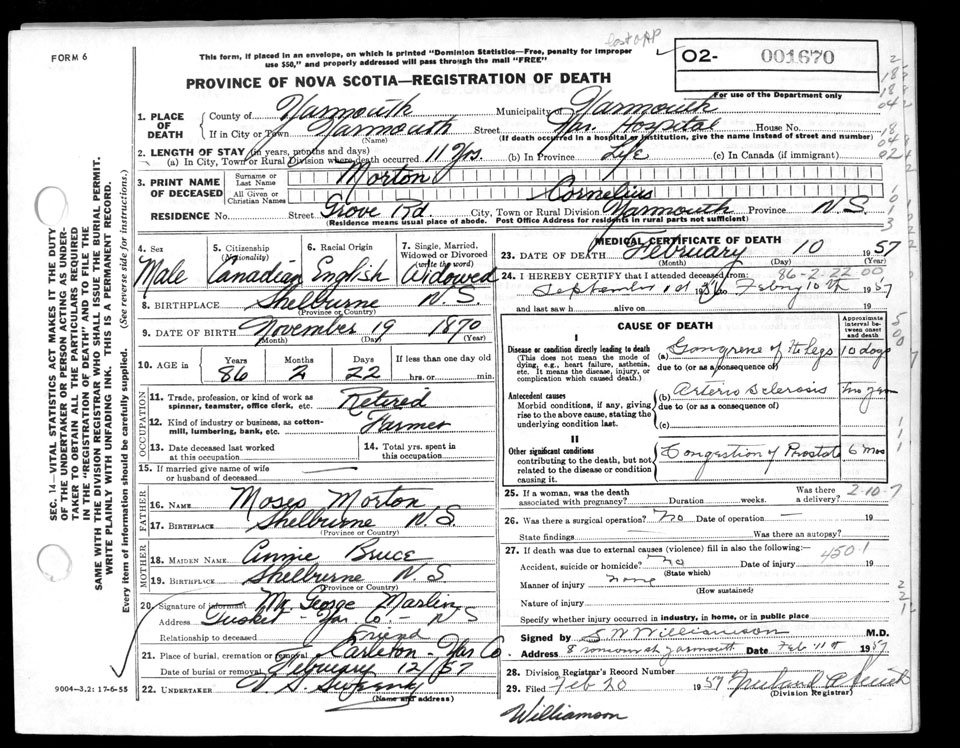 FORM 6
This form, if placed in an envelope, on which is printed "Dominion Statistics—Free, penalty for improper
use $50," and properly addressed will pass through the mail "FREE"
PROVINCE OF NOVA SCOTIA—REGISTRATION OF DEATH
O2- 001670
For use of the Department only
1. PLACE OF DEATH County of Yarmouth Municipality of Yarmouth
If in City or Town Yarmouth Street Hospital House No.
(Name) (If death occurred in a hospital or institution, give the name instead of street and number)
2. LENGTH OF STAY (in years, months and days)
(a) In City, Town or Rural Division where death occurred 11 Yrs. (b) In Province Life (c) In Canada (if immigrant)
3. PRINT NAME OF DECEASED Surname or Last Name Morton
All Given or Christian Names Cornelius
RESIDENCE No. Street Grove Rd. City, Town or Rural Division Yarmouth Province N.S.
(Residence means usual place of abode. Post Office Address for residents in rural parts not sufficient)
4. Sex Male
5. Citizenship (Nationality) Canadian
6. Racial Origin English
7. Single, Married, Widowed or Divorced (write the word) Widowed
8. BIRTHPLACE Shelburne N.S.
(Province or Country)
9. DATE OF BIRTH November 19 1870
(Month) (Day) (Year)
10. AGE in Years 86 Months 2 Days 22 If less than one day old
hrs. or min.
OCCUPATION
11. Trade, profession, or kind of work as spinner, teamster, office clerk, etc. Retired
12. Kind of industry or business, as cotton-mill, lumbering, bank, etc. Farmer
13. Date deceased last worked at this occupation
14. Total yrs. spent in this occupation
15. If married give name of wife or husband of deceased
FATHER
16. NAME Moses Morton
17. BIRTHPLACE Shelburne N.S.
(Province or Country)
MOTHER
18. MAIDEN NAME Annie Bruce
19. BIRTHPLACE Shelburne N S
(Province or Country)
20. Signature of informant Mr George Marlin
Address Tusket - Yar. Co. - N S
Relationship to deceased Friend
21. Place of burial, cremation or removal Carleton - Yar Co.
Date of burial or removal February 12/57
22. UNDERTAKER Sweeny
(Name and address)
MEDICAL CERTIFICATE OF DEATH
23. DATE OF DEATH February 10 1957
(Month) (Day) (Year)
86-2-22 00
24. I HEREBY CERTIFY that I attended deceased from:
September 1st to Febry 10th 1957
and last saw h alive on 19
CAUSE OF DEATH
Approximate interval between onset and death
I
Disease or condition directly leading to death
(This does not mean the mode of dying, e.g., heart failure, asthenia, etc. It means the disease, injury, or complication which caused death.)
(a) Gangrene of the legs 10 days
due to (or as a consequence of)
Antecedent causes
Morbid conditions, if any, giving rise to the above cause, stating the underlying condition last.
(b) Arterio Sclerosis
due to (or as a consequence of)
(c)
II
Other significant conditions
contributing to the death, but not related to the disease or condition causing it.
Congestion of Prostate 6 mos
25. If a woman, was the death associated with pregnancy? Duration weeks. Was there a delivery?
2-10-7
26. Was there a surgical operation? No Date of operation — 19
State findings Was there an autopsy?
27. If death was due to external causes (violence) fill in also the following:—
450.1
Accident, suicide or homicide? no Date of injury 19
(State which)
Manner of injury none
(How sustained)
Nature of injury
Specify whether injury occurred in industry, in home, or in public place
Signed by S W Williamson M.D.
Address Yarmouth Date Feb 11th 1957
28. Division Registrar's Record Number
29. Filed Feb 20 1957
(Division Registrar)
Williamson
9004—3.2: 17-6-55
SEC. 14.—VITAL STATISTICS ACT MAKES IT THE DUTY
OF THE UNDERTAKER OR PERSON ACTING AS UNDER-
TAKER TO OBTAIN ALL THE PARTICULARS REQUIRED
IN THE "REGISTRATION OF DEATH" AND TO FILE THE
SAME WITH THE DIVISION REGISTRAR WHO SHALL ISSUE THE BURIAL PERMIT.
WRITE PLAINLY WITH UNFADING INK. THIS IS A PERMANENT RECORD.
Every item of information should be carefully supplied. (See reverse side for instructions.)